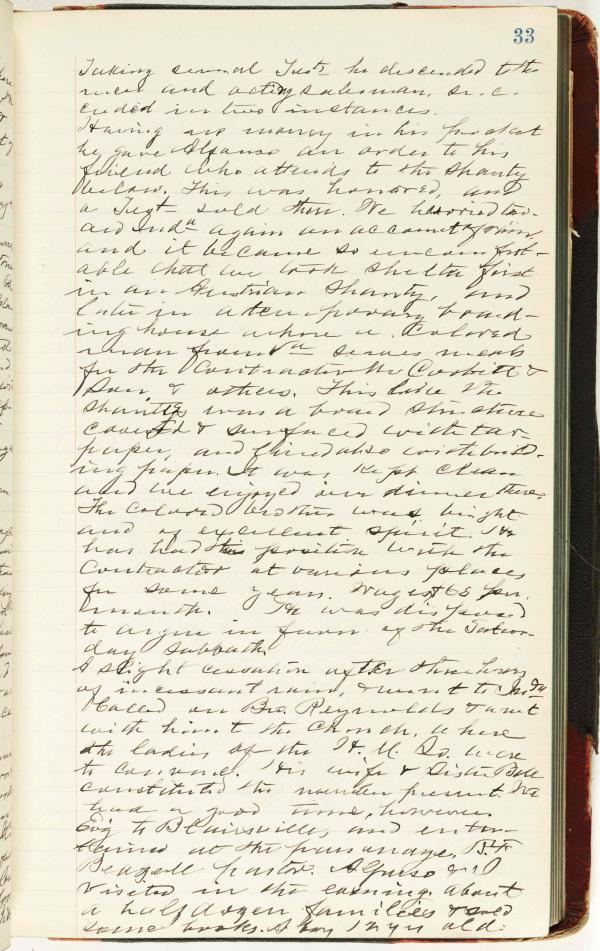 33
Taking several Tests he descended to the
and acting salesman, suc-
ceeded in two instances.
Having no money in his pocket
he gave Alfonso an order to his
friend who attends to the shanty
below. This was honored, and
a Test sold them. We hurried to-
ward Inda again on account of rain,
and it became so uncomfort-
able that we took shelter first
in an Austrian shanty, and
later in a temporary board-
ing house where a Colored
man from Va serves meals
for the Contractor Mr Corbitt &
Son & others. This like the
shanties was a board structure
covered & surfaced with tar-
paper, and lined also with build-
ing paper. It was kept clean
and we enjoyed our dinner there.
The Colored brother was bright
and of excellent spirit. He
has had this position with the
Contractor at various places
for some years. Wages $65 per
month. He was disposed
to argue in favor of the Satur-
day Sabbath.
A slight cessation after three hours
of incessant rain, & went to Inda
Called on Bro. Reynolds & went
with him to the Church, where
the ladies of the H. M. So. were
to convene. His wife & Sister Bell
constituted the number present. We
had a good time, however.
Evg to Blairsville, and enter-
tained at the parsonage, B.F.
Beazell pastor. Alfonso & I
visited in the evening about
a half dozen families & sold
some books. A boy 12 yrs old